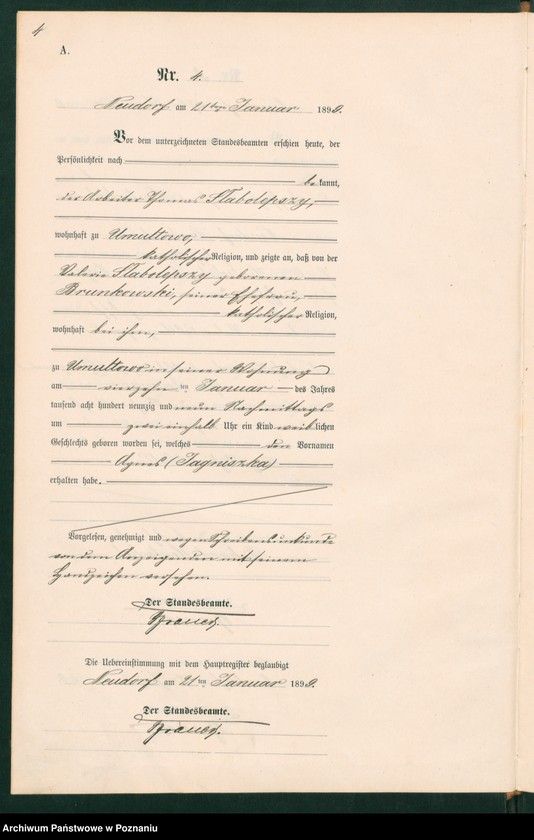 4
A.
Nr. 4.
Neudorf am 21ten Januar 1899.
Vor dem unterzeichneten Standesbeamten erschien heute, der
Persönlichkeit nach
bekannt,
der Arbeiter Thomas Slabolepszy,
wohnhaft zu Umultowo,
katholischer Religion, und zeigte an, daß von der
Valerie Slabolepszy geborenen
Brunkowski, seiner Ehefrau,
katholischer Religion,
wohnhaft bei ihm,
zu Umultowo in seiner Wohnung
am vierzehnten Januar des Jahres
tausend acht hundert neunzig und neun Nachmittags
um zwei einhalb Uhr ein Kind weiblichen
Geschlechts geboren worden sei, welches den Vornamen
Agnes (Jagniszka)
erhalten habe.
Vorgelesen, genehmigt und wegen Schreibensunkunde
von dem Anzeigenden mit seinem
Handzeichen versehen.
Der Standesbeamte.
Die Uebereinstimmung mit dem Hauptregister beglaubigt
Neudorf am 21ten Januar 1899.
Der Standesbeamte.
Archiwum Państwowe w Poznaniu